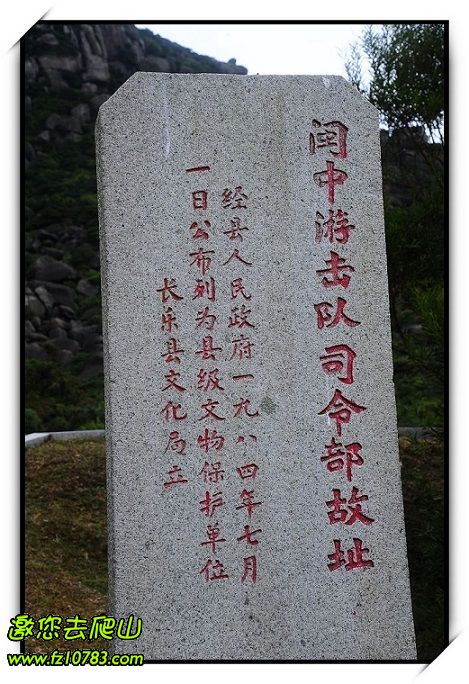 闽中游击队司令部故址
经县人民政府一九八四年七月
一日公布列为县级文物保护单位
长乐县文化局立
邀您去爬山
www.fz10783.com